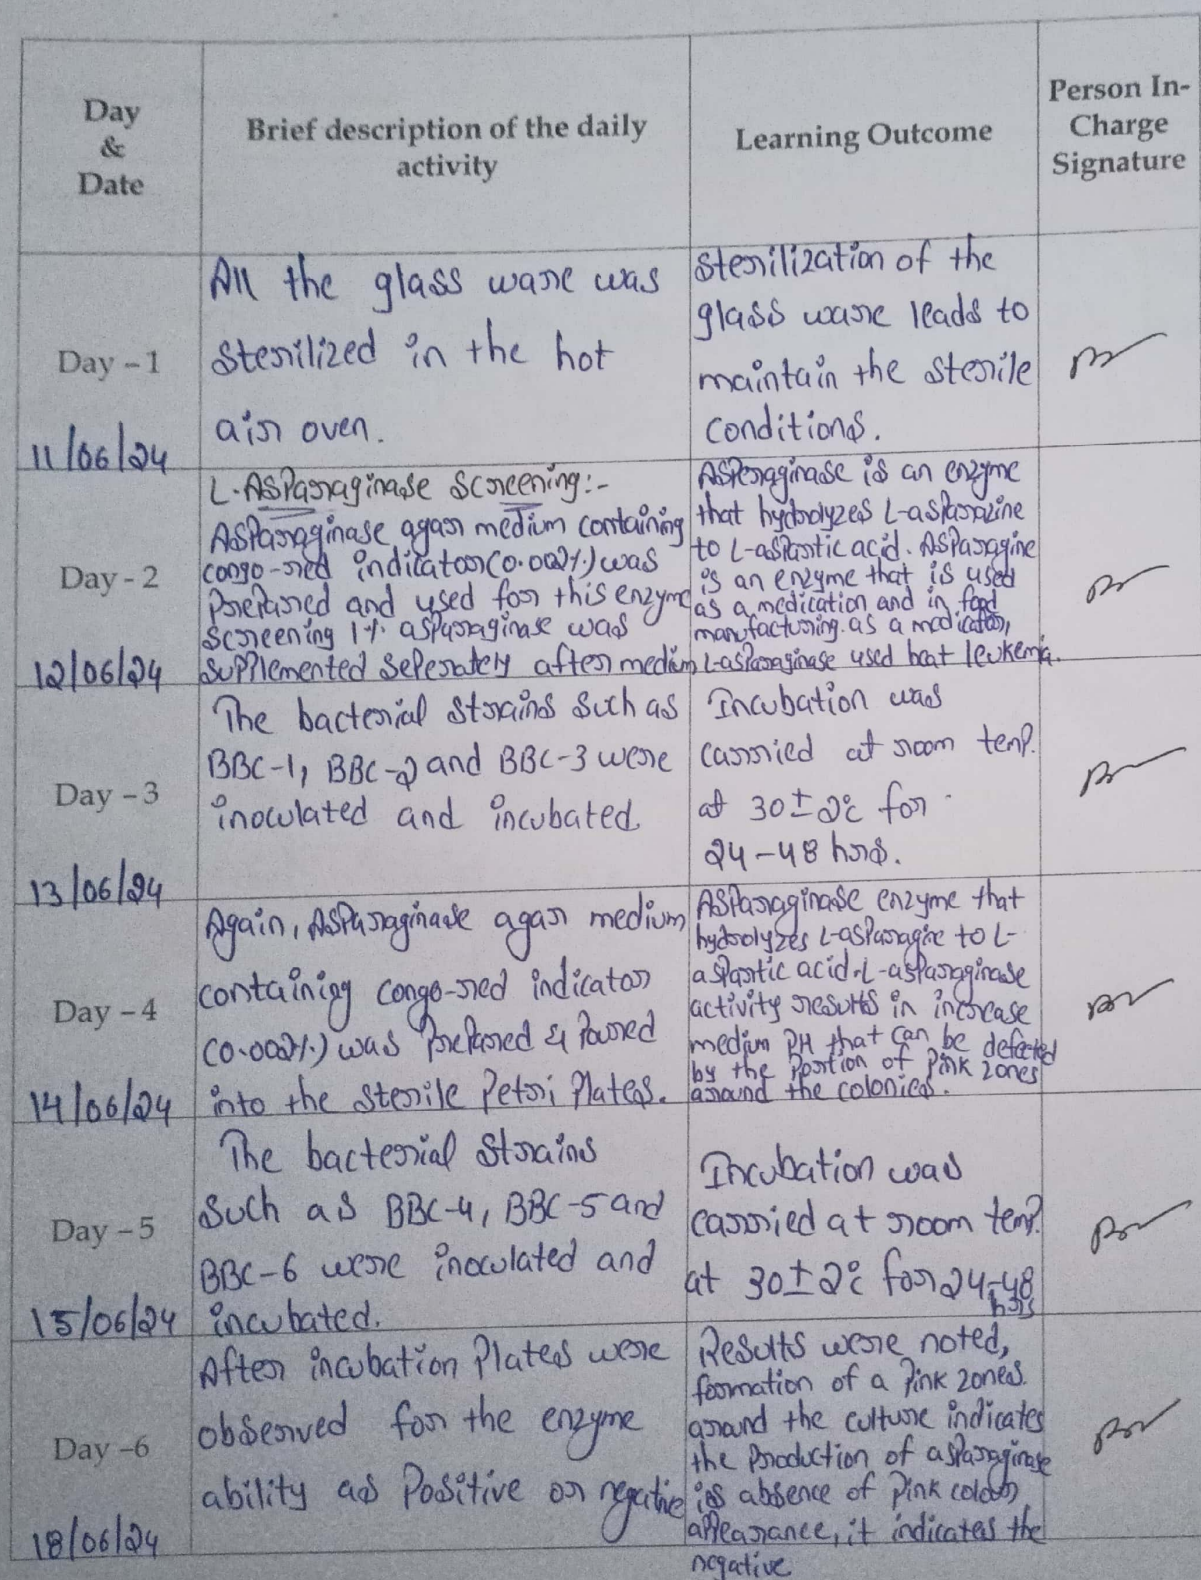 Day
&
Date
Brief description of the daily
activity
Learning Outcome
Person In-
Charge
Signature
Day - 1
11/06/24
All the glass ware was
sterilized in the hot
air oven.
sterilization of the
glass ware leads to
maintain the sterile
conditions.
Day - 2
12/06/24
L-Asparaginase Screening:-
Asparaginase agar medium containing
congo-red indicator (0.002%) was
prepared and used for this enzyme
screening 1% asparaginase was
supplemented seperately after medium
Asperaginase is an enzyme
that hydrolyzes L-asparazine
to L-aspartic acid. Asparagine
is an enzyme that is used
as a medication and in food
manufacturing. as a medication,
L-asparaginase used beat leukemia.
Day - 3
13/06/24
The bacterial strains such as
BBC-1, BBC-2 and BBC-3 were
inoculated and incubated.
Incubation was
carried at room temp.
at 30±2°c for
24-48 hrs.
Day - 4
14/06/24
Again, Asparaginase agar medium
containing congo-red indicator
(0.002%) was prepared & poured
into the sterile petri plates.
Asparaginase enzyme that
hydrolyzes L-asparagine to L-
aspartic acid. L-asparaginase
activity results in increase
medium PH that can be detected
by the portion of pink zones
around the colonies.
Day - 5
15/06/24
The bacterial strains
such as BBC-4, BBC-5 and
BBC-6 were inoculated and
incubated.
Incubation was
carried at room temp.
at 30±2°c for 24-48
hrs
Day -6
18/06/24
After incubation plates were
observed for the enzyme
ability as positive or negative
Results were noted,
formation of a pink zones.
around the culture indicates
the production of asparaginase
absence of pink colour
appearance, it indicates the
negative